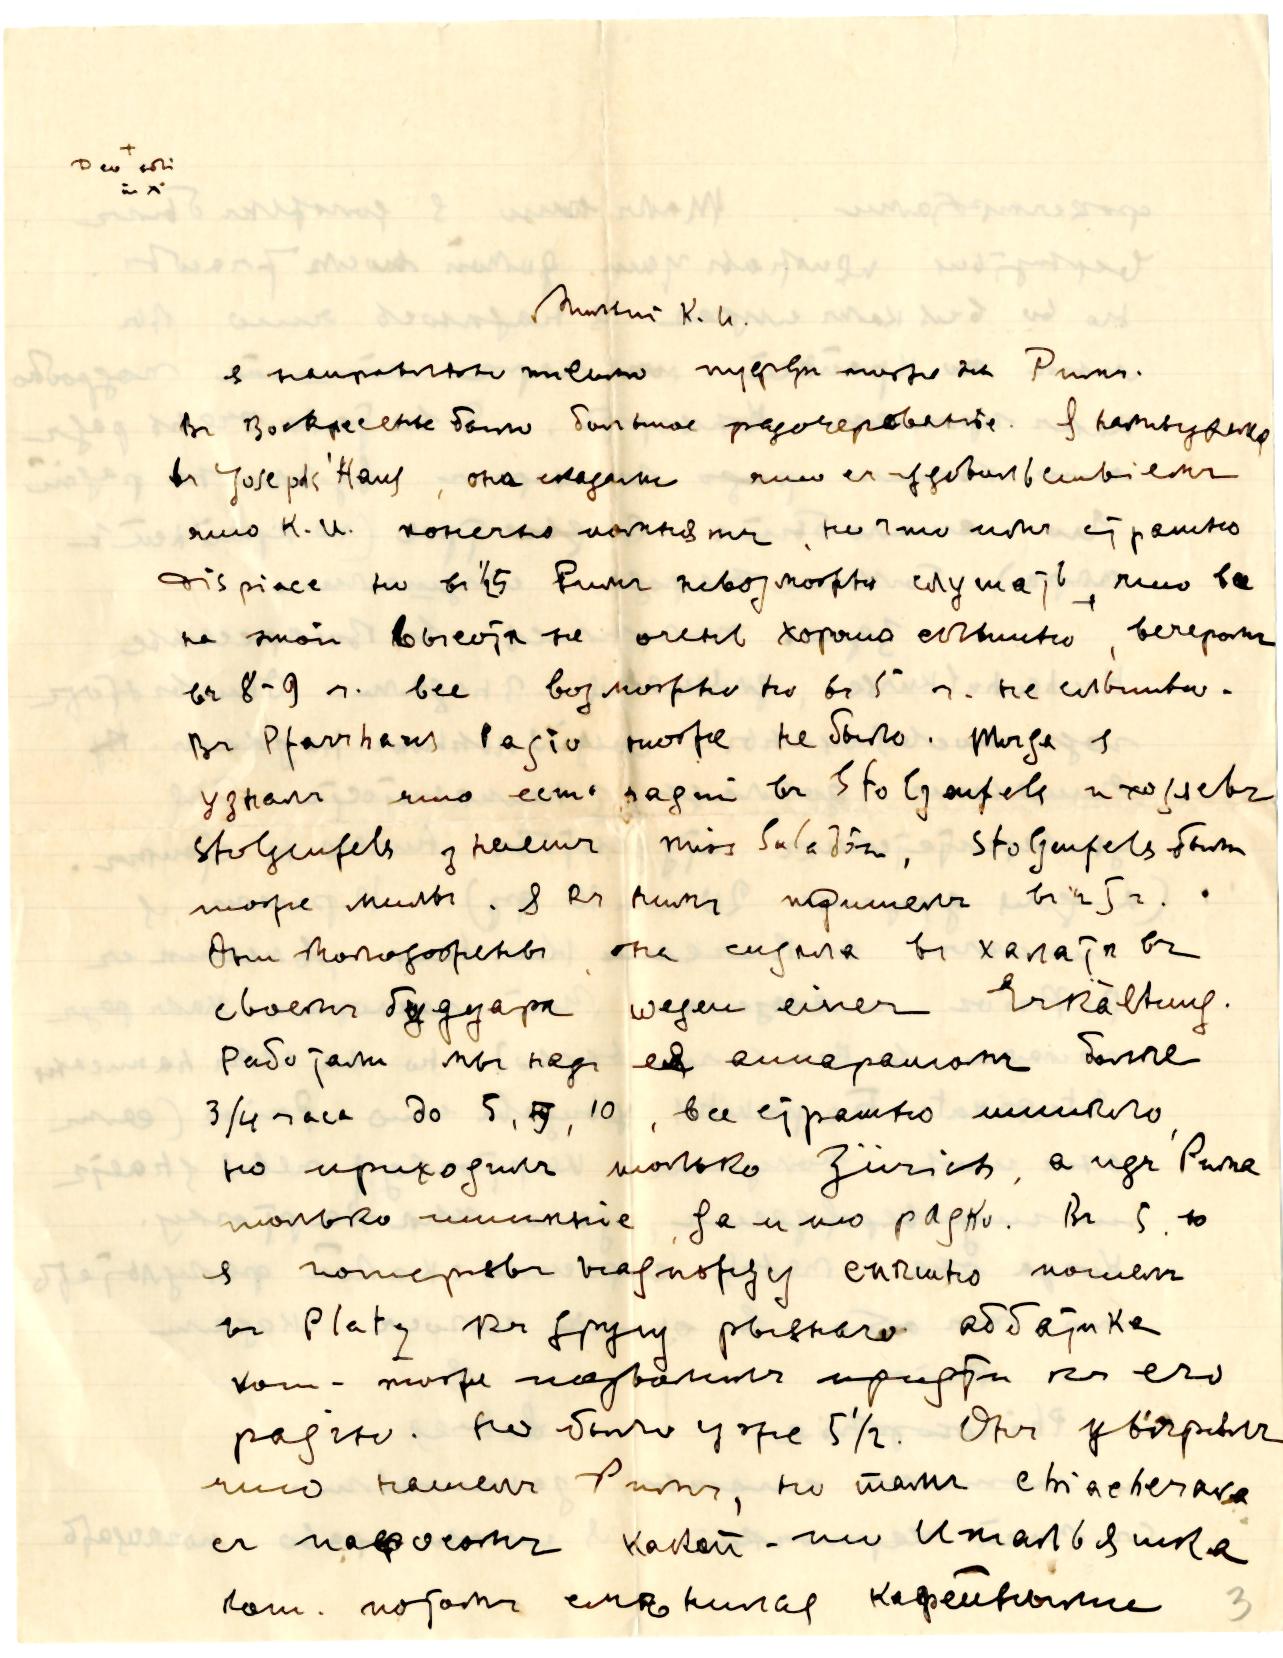 Милый К. И.
я направляю письмо туда на Римъ.
Въ Воскресенье было большое разочерованіе. Я
въ Josephs Haus, она сказала что съ удовольствіемъ
что К. И. конечно помнятъ, но что имъ страшно
dispiace но въ 1/2 5 Римъ невозможно слушать, что все
на этой высотѣ не очень хорошо слышно, вечеромъ
въ 8-9 ч. все возможно но въ 5 ч. не слышно.
Въ Pfarrhaus Радіо тоже не было. Тогда я
узналъ что есть радіо въ Stolzenfels и хозяевъ
Stolzenfels знаетъ miss, Stolzenfels были
тоже милы. Я къ нимъ пришелъ въ 5 ч.
Они молодожены, она сидѣла въ халатѣ въ
своемъ будуарѣ wegen einer Erkältung.
Работали мы надъ ея аппаратомъ болѣе
3/4 часа до 5, 10, все страшно шипѣло,
но приходилъ только Zürich, а изъ Рима
только шипѣніе, да и то рѣдко. Въ 5, 10
я потерявъ надежду спѣшно пошелъ
въ Platz къ другу рьянаго аббатика
кот. тоже позволилъ придти къ его
радіо. Но было уже 5 1/2. Онъ увѣрялъ
что нашелъ Римъ, но тамъ chiacherava
съ какой-то Итальянка
кот. потомъ смѣнилась
3